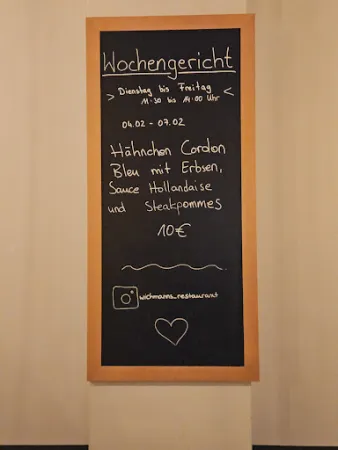 Wochengericht
> Dienstag bis Freitag <
11:30 bis 14:00 Uhr
04.02 - 07.02
Hähnchen Cordon
Bleu mit Erbsen,
Sauce Hollandaise
und Steakpommes
10€
wichmanns_restaurant